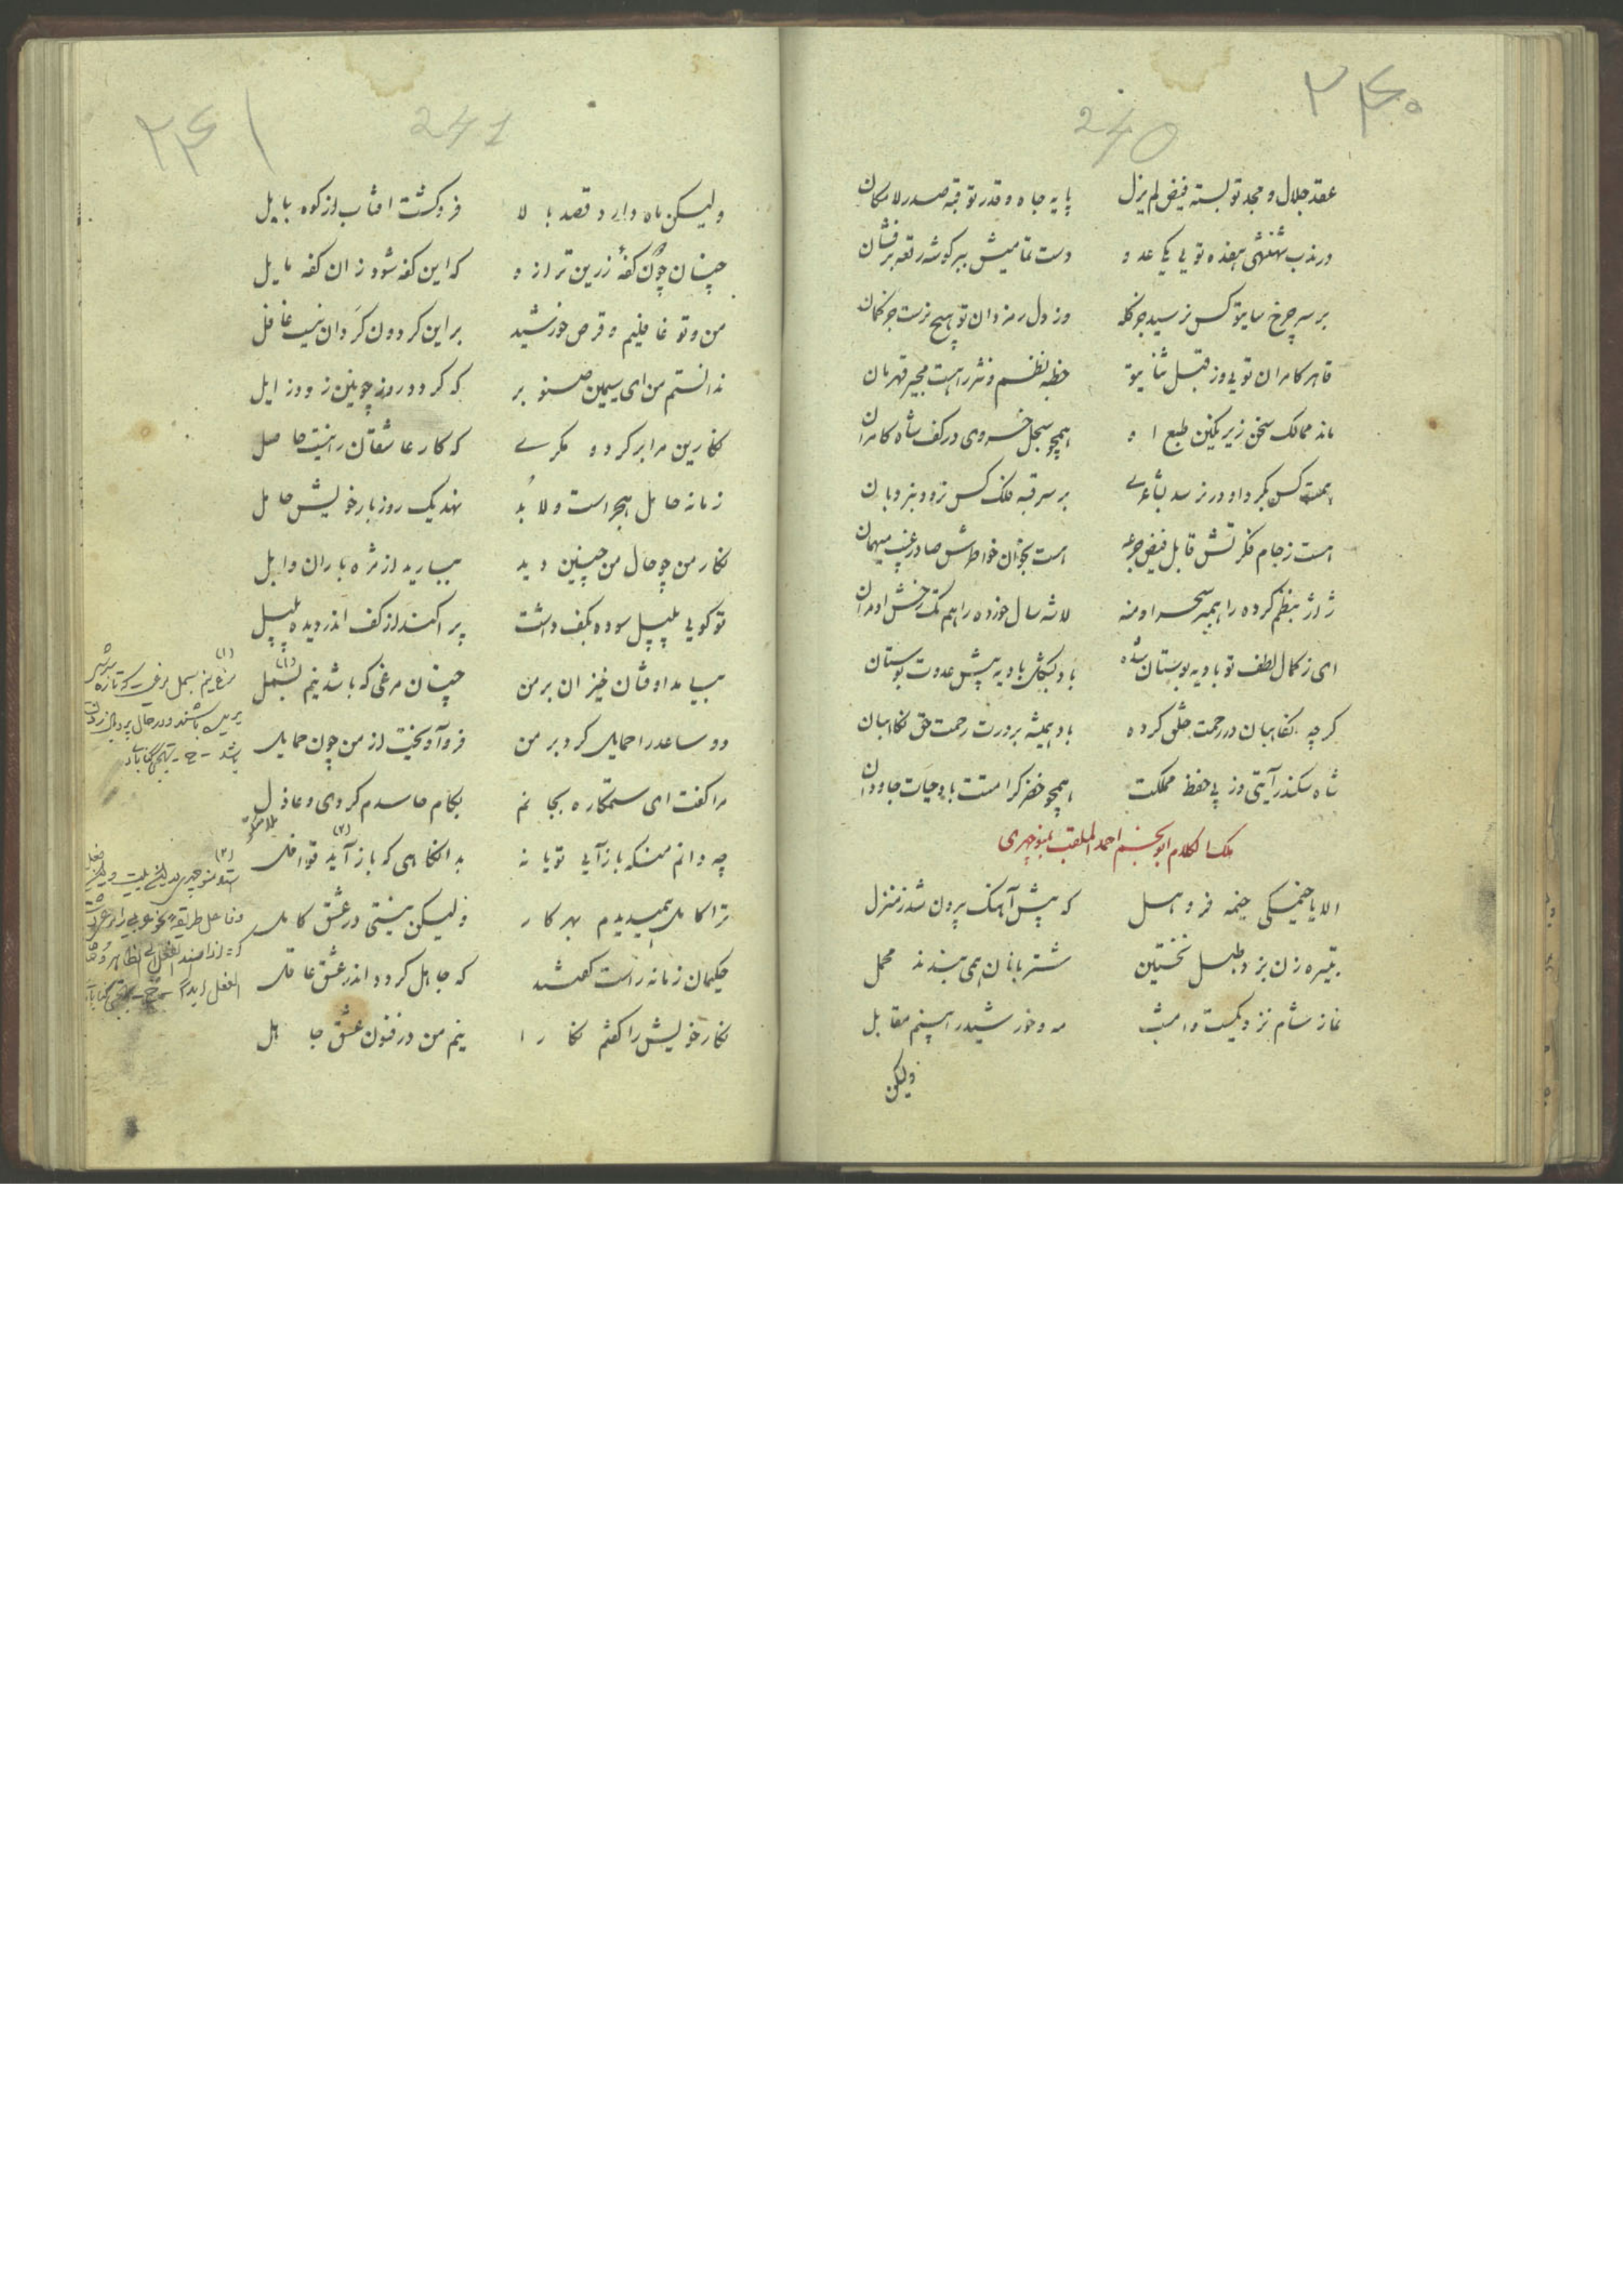 ۲۴۰
240
عقد جلال و مجد تو بسته فیض لم یزل پایه جاه و قدر تو قبه صدر لامکان
در ندب شهنشهی هفده تویی یکا عدو دست تمامیش ببر گوشه رقعه برفشان
بر سر چرخ سایتو کس نرسید جز کله وز دل رمزدان تو هیچ نرست جز کمان
قاهر کامران تویی وز قبل ثنایتو خطه نظم و نثر راهست مجیر قهرمان
ماند ممالک سخن زیر نکین طبع او همچو سجل خسروی در کف شاه کامران
همت کس بکرد او در نرسد بشاعری بر سر قبه فلک کس نرود بنردبان
هست ز جام فکرتش قابل فیض جرعه هست بخوان خواطرش صادر غیب میهمان
ژاژ بنظم کرده را همبر سحر او منه لاشه سال خورده را هم تک رخش او مران
ای ز کمال لطف تو بادیه بوستان شده باد بشکل بادیه پیش عدوت بوستان
کرچه نگاهبان در رحمت خلق کرده باد همیشه بر درت رحمت حق نگاهبان
شاه سکندر آیتی وز پی حفظ مملکت همچو خضر کرامتت باد حیات جاودان
ملک الکلام ابوالنجم احمد الملقب بمنوچهری
الا یا خیمگی خیمه فرو هل که پیش آهنک بیرون شد ز منزل
تبیره زن بزد طبل نخستین شتربانان همی بندند محمل
نماز شام نزدیکست و امشب مه و خورشید را بینم مقابل
ولیکن
۲۴۱
241
ولیکن ماه دارد قصد بالا فروکشت افتاب از کوه بابل
چنان چون کفهٔ زرین ترازو که این کفه شود زان کفه مایل
من و تو غافلیم و قرص خورشید بر این کردون کردان نیست غافل
ندانستم من ای سیمین صنوبر که کردد روز چونین زود زایل
نگارین مرا برکرد و مکری که کار عاشقان را نیست حاصل
زمانه حامل هجر است و لابد نهد یک روز بار خویش حامل
نگار من چو حال من چنین دید ببارید از مژه باران وابل
تو کویی پلپل سوده بکف داشت پراکند از کف اندر دیده پلپل
بیامد اوفتان خیزان بر من چنان مرغی که باشد نیم بسمل (۱)
دو ساعد را حمایل کرد بر من فرو آویخت از من چون حمایل
مرا کفت ای ستمکاره بجانم بکام حاسدم کردی و عاذل
ملامتگر
چه دانم منکه باز آیی تو یا نه بدانگاهی که باز آید (۲) قوافل
ترا کامل همیدیدم بهر کار ولیکن نیستی در عشق کامل
حکیمان زمانه راست کفتند که جاهل کردد اندر عشق عاقل
نگار خویش را کفتم نگارا نیم من در فنون عشق جاهل
(۱)
(۲)